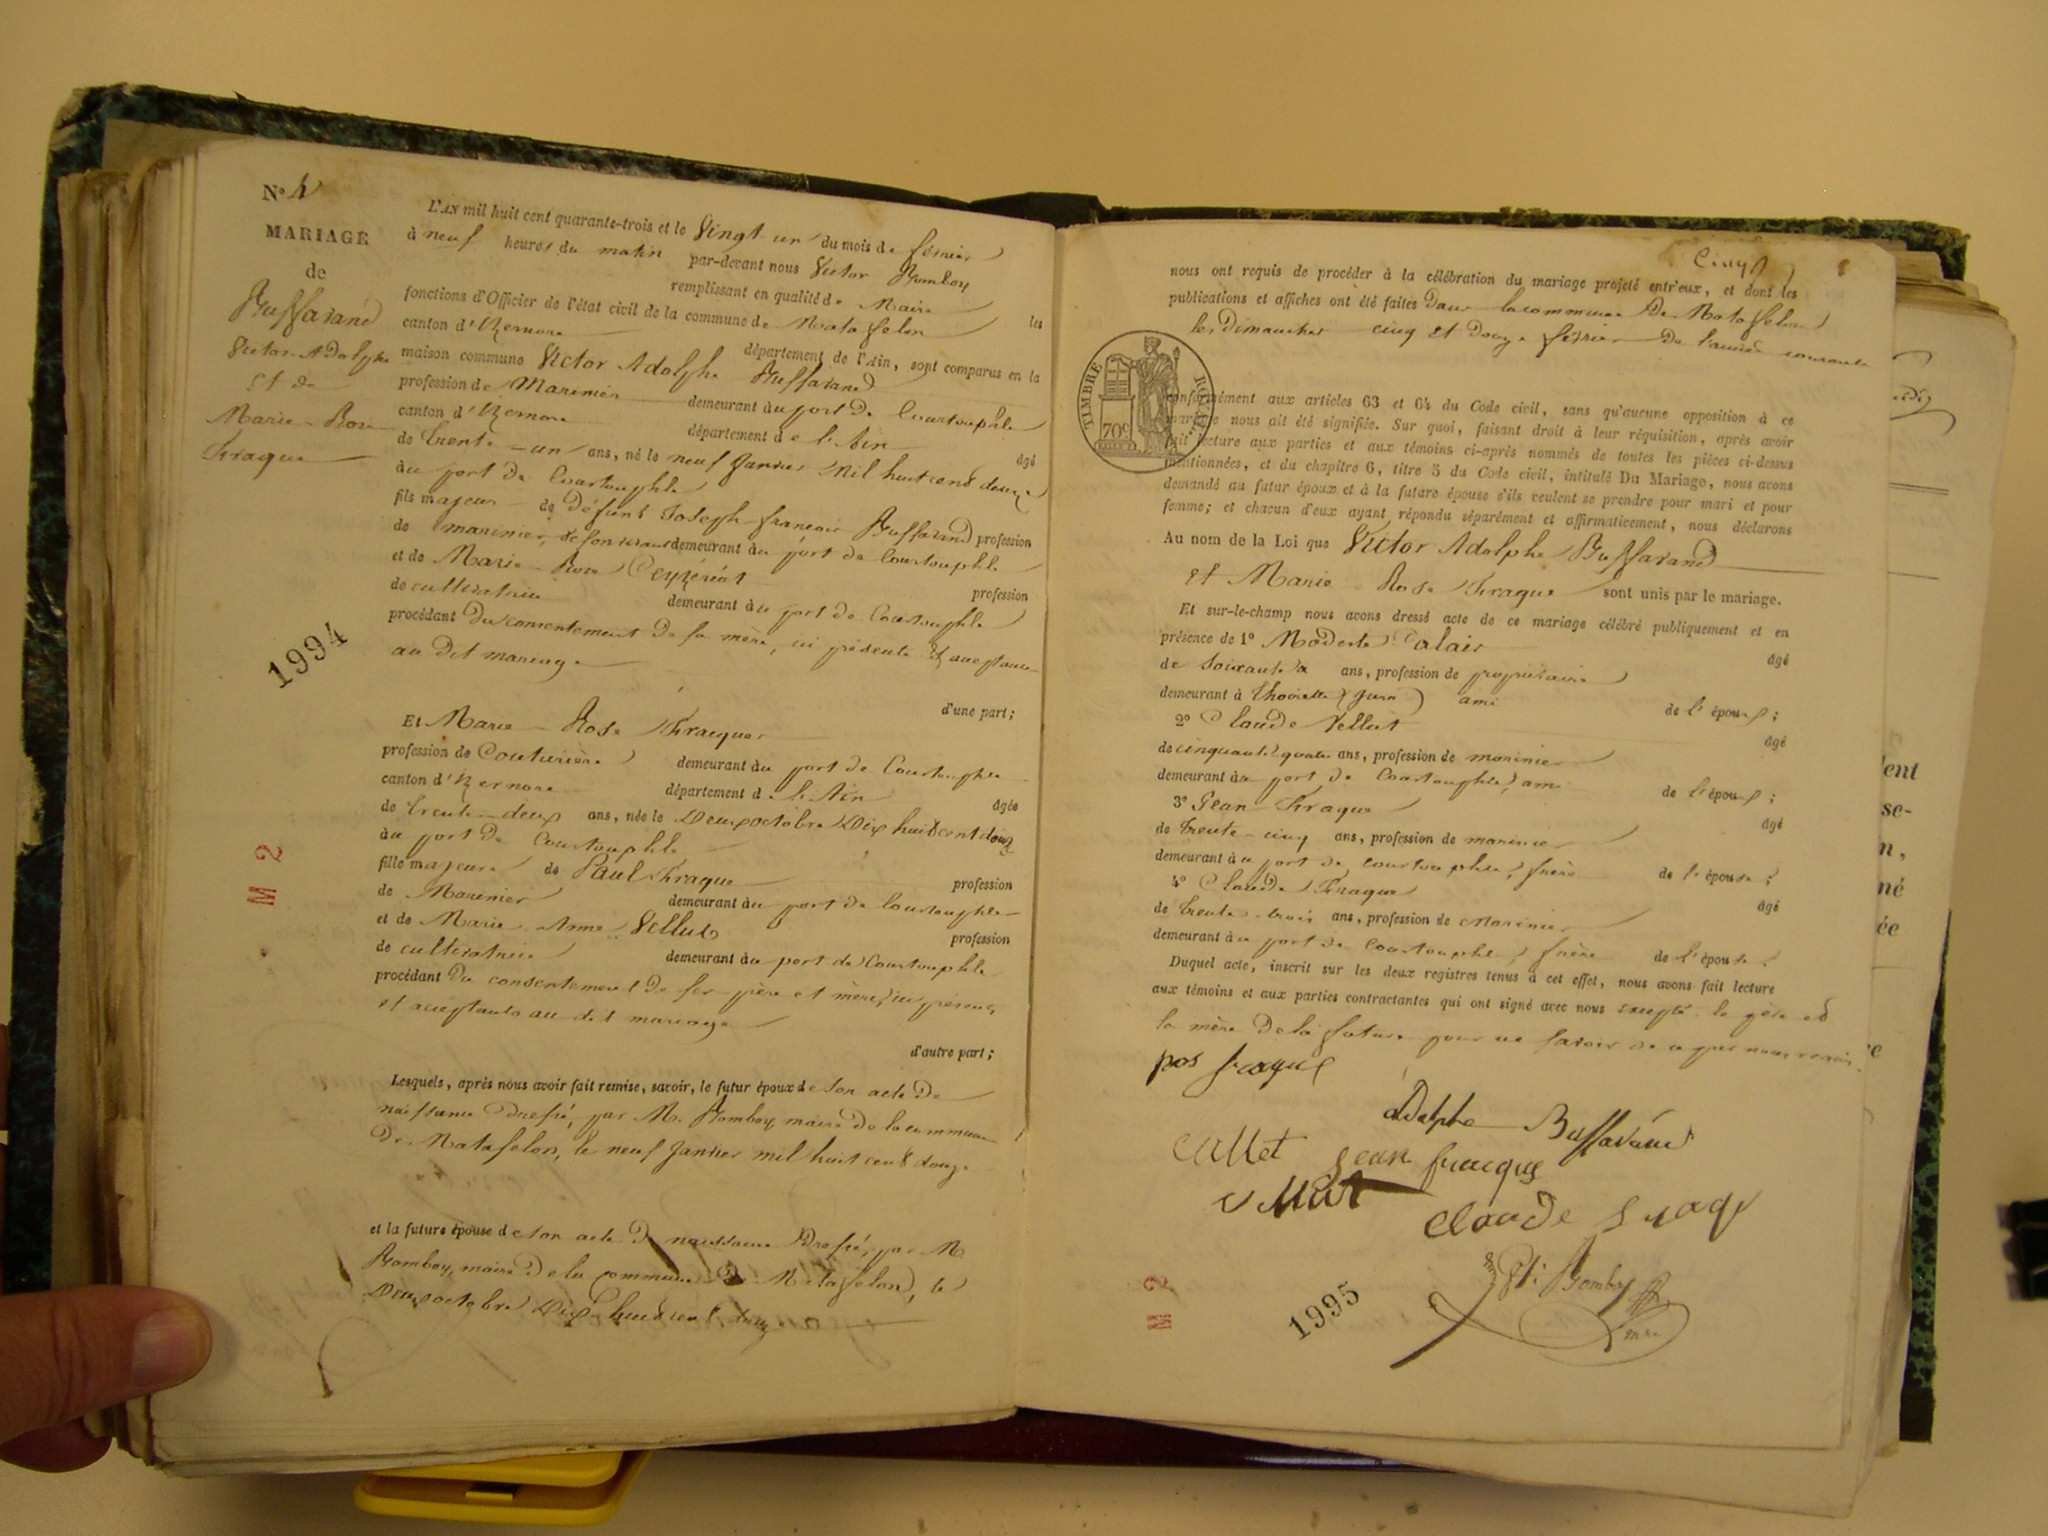 N° 4
MARIAGE
de
Buffavand
Victor Adolphe
Et de
Marie Rose
Fraque
1994
M 2
L'AN mil huit cent quarante-trois et le Vingt un du mois de février
à neuf heures du matin par-devant nous Victor Bomboy
remplissant en qualité de Maire les
fonctions d'Officier de l'état civil de la commune de Matafelon
canton d'Izernore département de l'Ain, sont comparus en la
maison commune Victor Adolphe Buffavand
profession de Marinier demeurant au port de Courtouphle
canton d'Izernore département de l'Ain âgé
de trente-un ans, né le neuf Janvier Mil huit cent douze
au port de Courtouphle
fils majeur de défunt Joseph françois Buffavand profession
de marinier, de son vivant demeurant au port de Courtouphle
et de Marie Rose profession
de cultivatrice demeurant au port de Courtouphle
procédant du consentement de sa mère, ici présente et acceptante
au dit mariage
d'une part;
Et Marie Rose Fraque
profession de Couturière demeurant au port de Courtouphle
canton d'Izernore département de l'Ain âgée
de trente-deux ans, née le Deux octobre Dix huit cent dix
au port de Courtouphle
fille majeure de Paul Fraque profession
de Marinier demeurant au port de Courtouphle
et de Marie Anne Vellut profession
de cultivatrice demeurant au port de Courtouphle
procédant du consentement de ses père et mère, ici présents
et acceptants au dit mariage
d'autre part;
Lesquels, après nous avoir fait remise, savoir, le futur époux de son acte de
naissance Dressé, par M. Bomboy, maire de la commune
De Matafelon, le neuf Janvier mil huit cent douze
et la future épouse de son acte de naissance Dressé, par M
Bomboy, maire de la commune de Matafelon, le
Deux octobre Dix huit cent dix
Cinq
nous ont requis de procéder à la célébration du mariage projeté entr'eux, et dont les
publications et affiches ont été faites Dans la commune De Matafelon
les Dimanches cinq et Douze février De l'année courante
TIMBRE ROYAL
70c
conformément aux articles 63 et 64 du Code civil, sans qu'aucune opposition à ce
mariage nous ait été signifiée. Sur quoi, faisant droit à leur réquisition, après avoir
fait lecture aux parties et aux témoins ci-après nommés de toutes les pièces ci-dessus
mentionnées, et du chapitre 6, titre 5 du Code civil, intitulé Du Mariage, nous avons
demandé au futur époux et à la future épouse s'ils veulent se prendre pour mari et pour
femme; et chacun d'eux ayant répondu séparément et affirmativement, nous déclarons
Au nom de la Loi que Victor Adolphe Buffavand
et Marie Rose Fraque sont unis par le mariage.
Et sur-le-champ nous avons dressé acte de ce mariage célébré publiquement et en
présence de 1° Modeste âgé
de soixante ans, profession de propriétaire
demeurant à Thoirette (Jura) ami de l'époux;
2° Claude Vellut âgé
de cinquante quatre ans, profession de marinier
demeurant au port de Courtouphle, ami de l'époux;
3° Jean Fraque âgé
de trente-cinq ans, profession de marinier
demeurant au port de courtouphle, frère de l'épouse;
4° Claude Fraque âgé
de trente-trois ans, profession de Marinier
demeurant au port de courtouphle, frère de l'épouse.
Duquel acte, inscrit sur les deux registres tenus à cet effet, nous avons fait lecture
aux témoins et aux parties contractantes qui ont signé avec nous excepté le père et
la mère de la future pour ne savoir de ce par nous requis.
fraque
adolphe Buffavand
jean fraque
Claude fraqe
Bomboy
mre
M 2
1995